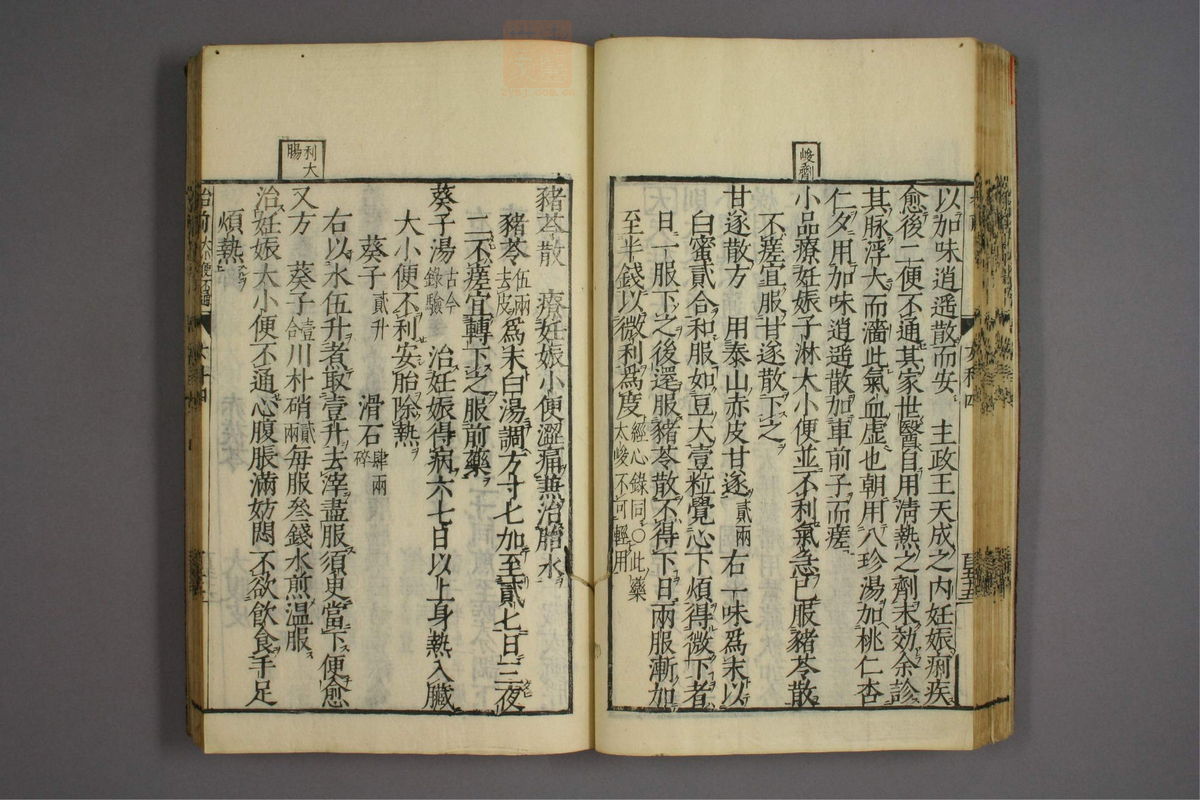 峻劑
以加味逍遥散而安　主政王天成之内妊娠痢疾
愈後二便不通其家世醫自用淸熱之劑未効余診
其脉浮大而濇此氣血虚也朝用八珍湯加桃仁杏
仁夕用加味逍遥散加車前子而瘥
小品療妊娠子淋大小便並不利氣急已服豬苓散
不瘥宜服甘遂散下之
甘遂散方　用泰山赤皮甘遂貳兩右一味爲末以
白蜜貳合和服如豆大壹粒覺心下煩得微下者
日一服下之後還服豬苓散不得下日兩服漸加
至半錢以微利爲度經心錄同○此藥太峻不可輕用
利大腸
豬苓散　療妊娠小便澀痛兼治胎水
豬苓伍兩去皮爲末白湯調方寸匕加至貳匕日三夜
二不瘥宜轉下之服前藥
葵子湯古今錄驗　治妊娠得病六七日以上身熱入臟
大小便不利安胎除熱
葵子貳升　滑石肆兩碎
右以水伍升煮取壹升去滓盡服須臾當下便愈
又方　葵子壹合川朴硝貳兩每服叄錢水煎温服
治妊娠大小便不通心腹脹滿妨悶不欲飲食手足
煩熱
治前大小便不通